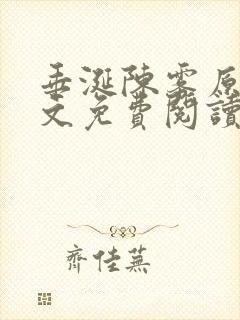 垂涎陳雾原
文免費閱讀
齊佳蕪